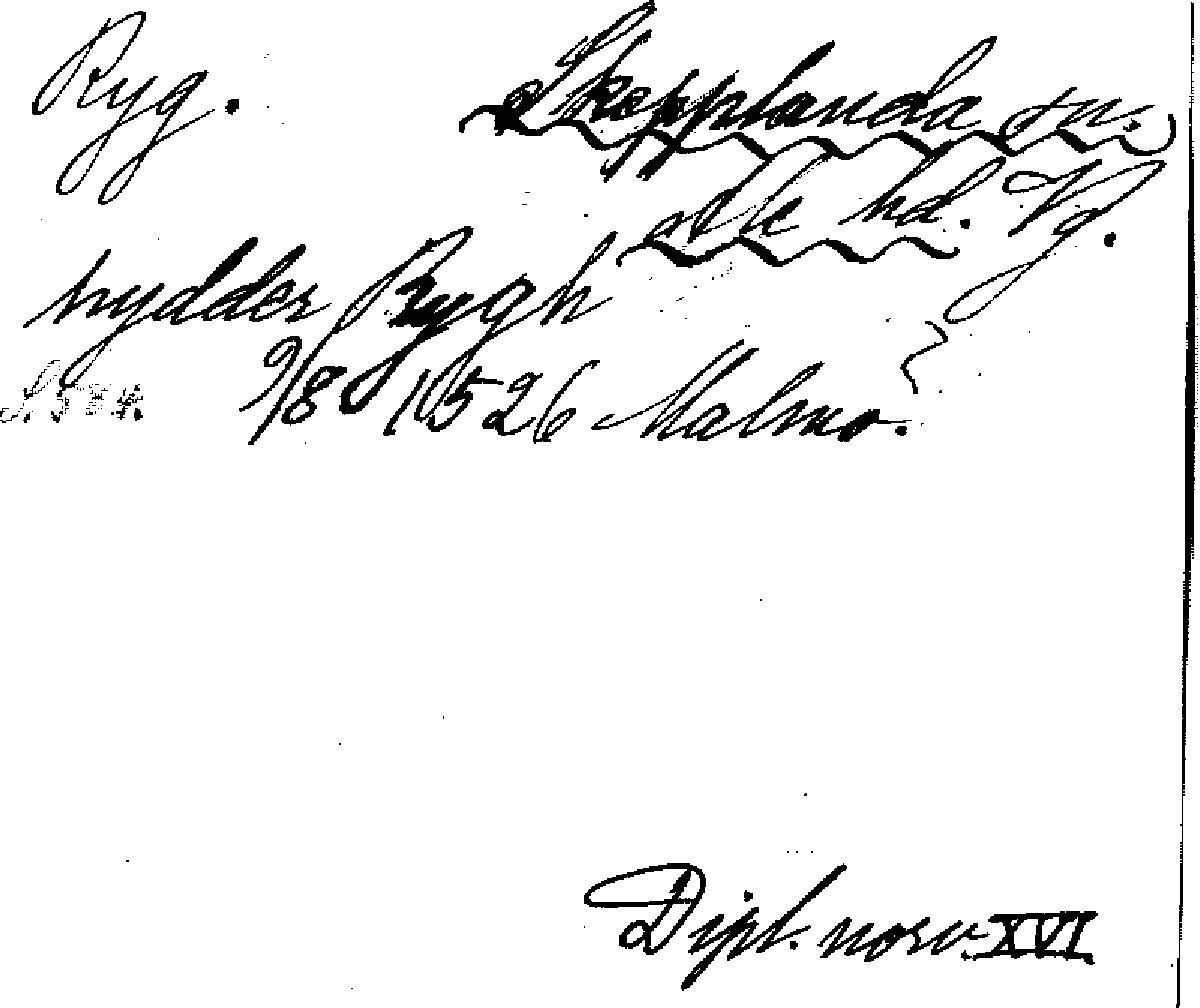 Ryg. Skepplanda sn.
Ale hd. Vg.
hydder Rygh
S. 584. 9/8 1526 Malmo.
Dipl. norv. XVI